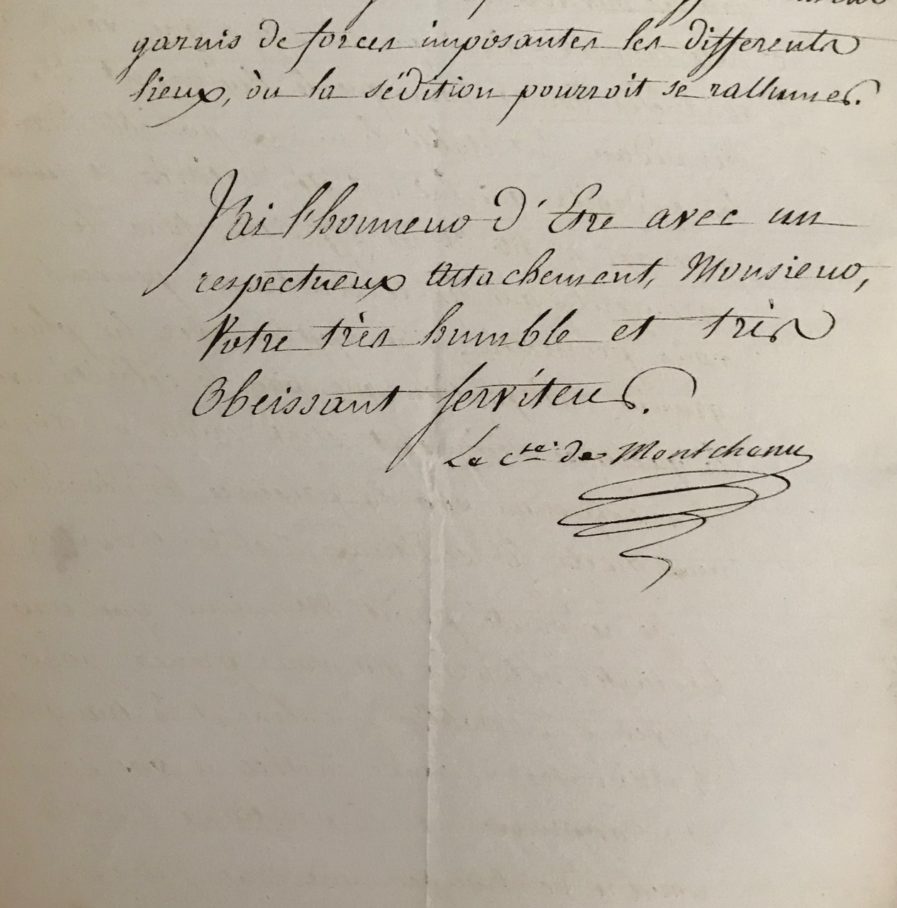 garnis de forces imposantes les differents
lieux, òu la sédition pourroit se rallumer.
J'ai l'honneur d'Etre avec un
respectueux Attachement, Monsieur,
Votre très humble et très
Obeissant serviteur.
Le cte. de Montchenu